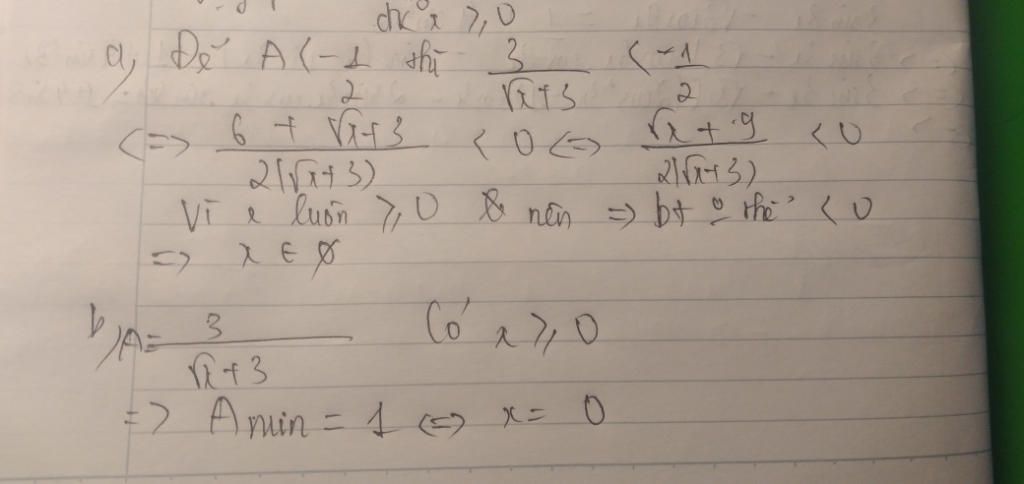 đk x ≥ 0
a, Để A < -1/2 thì 3/(√x+3) < -1/2
<=> (6 + √x+3)/(2(√x+3)) < 0 <=> (√x + 9)/(2(√x+3)) < 0
Vì x luôn ≥ 0 nên => bt o thể < 0
=> x ∈ ∅
b, A = 3/(√x+3) Có x ≥ 0
=> A min = 1 <=> x = 0